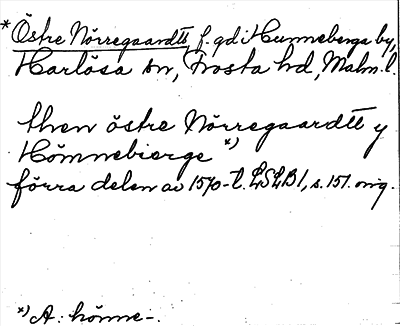 *Östre Nörregaardtt, f. gd i Hunneberga by,
Harlösa sn, Frosta hd, Malm. l.
then östre Nörregaardtt y
Hömnebierge x)
förra delen av 1570-t. LSLB1, s. 151. orig.
x) A: hömne-.